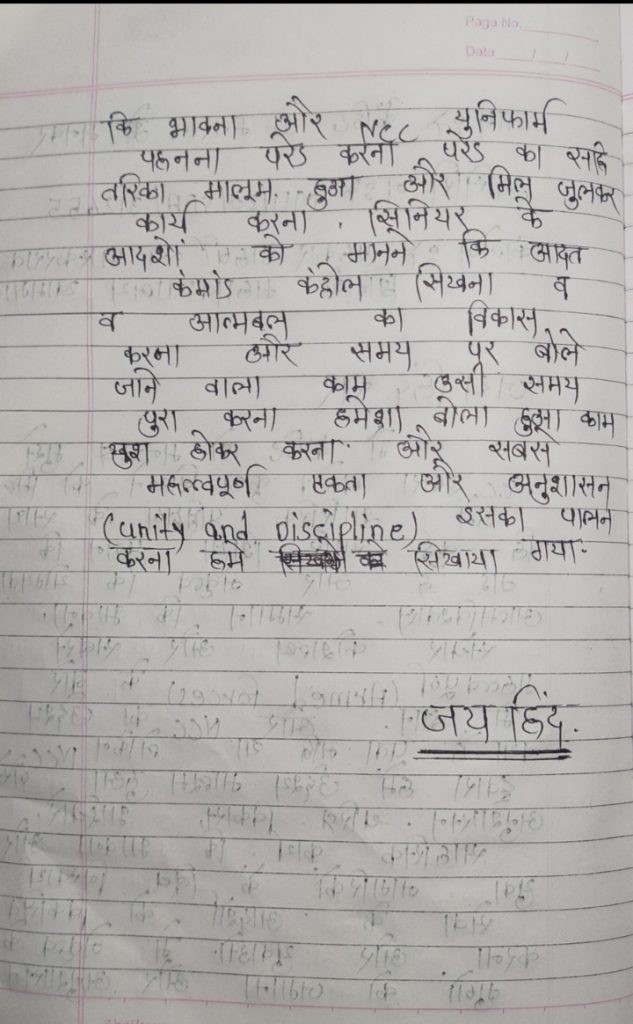 Page No.
Date
कि भावना और युनिफार्म
पहनना परेड करना NCC परेड का सहि
तरिका मालूम हुआ और मिल जुलकर
कार्य करना . सिनियर के
आदर्शो को मानने कि आदत
कंमांड कंट्रोल सिखना व
व आत्मबल का विकास
करना और समय पर बोले
जाने वाला काम उसी समय
पुरा करना हमेशा बोला हुआ काम
खुश होकर करना. और सबसे
महत्त्वपूर्ण एकता और अनुशासन
(unity and Discipline) इसका पालन
करना हमे सिखाया गया.
जय हिंद.